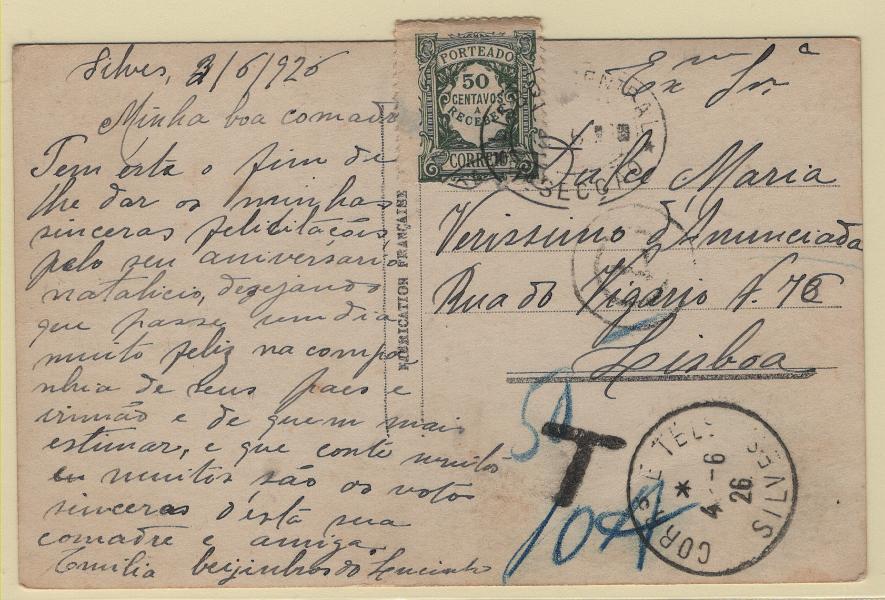 Silves, 3/6/926
Minha boa comadre
Tem esta o fim de
lhe dar os minhas
sinceras felicitações
pelo seu aniversario
natalicio, dezejando
que passe um dia
muito feliz na compa
nhia de seus paes e
irmão e de quem mais
estimar, e que conte muitos
muitos são os votos
sinceros d'esta sua
comadre e amiga
Emilia
PORTEADO
50
CENTAVOS
A
RECEBER
CORREIO
CENTRAL *
SECÇÃO
FABRICATION FRANÇAISE
Exma Snra
Dulce Maria
Verissimo d'Anunciada
Rua do Vigario N. 76
Lisboa
T
CORR. E TELG. SILVES
4 -6
26
*